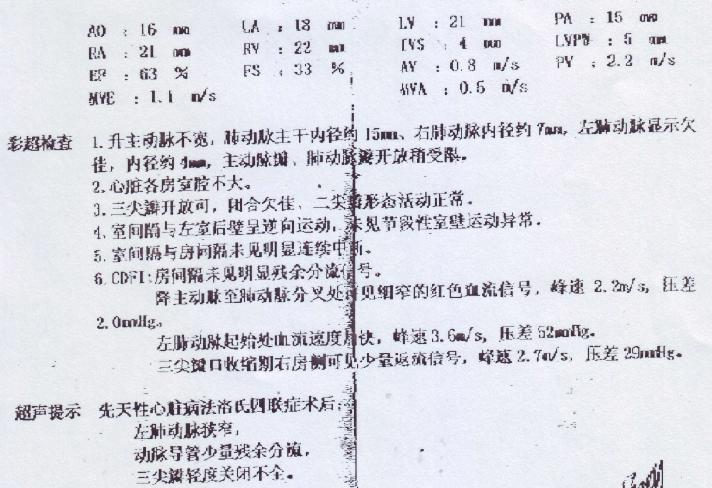 AO : 16 mm LA : 18 mm LV : 21 mm PA : 15 mm
RA : 21 mm RV : 22 mm IVS : 4 mm LVPW : 5 mm
EF : 63 % FS : 33 % AV : 0.8 m/s PV : 2.2 m/s
MVE : 1.1 m/s MVA : 0.5 m/s
彩超检查 1.升主动脉不宽，肺动脉主干内径约15mm、右肺动脉内径约7mm，左肺动脉显示欠
佳，内径约4mm，主动脉瓣、肺动脉瓣开放稍受限。
2.心脏各房室腔不大。
3.三尖瓣开放可，闭合欠佳、二尖瓣形态活动正常。
4.室间隔与左室后壁呈逆向运动，未见节段性室壁运动异常.
5.室间隔与房间隔未见明显连续中断。
6.CDFI:房间隔未见明显残余分流信号。
降主动脉至肺动脉分叉处可见细窄的红色血流信号，峰速 2.2m/s，压差
2.0mmHg。
左肺动脉起始处血流速度加快，峰速3.6m/s，压差52mmHg。
三尖瓣口收缩期右房侧可见少量返流信号，峰速2.7m/s，压差29mmHg。
超声提示 先天性心脏病法洛氏四联症术后：
左肺动脉狭窄，
动脉导管少量残余分流，
三尖瓣轻度关闭不全。